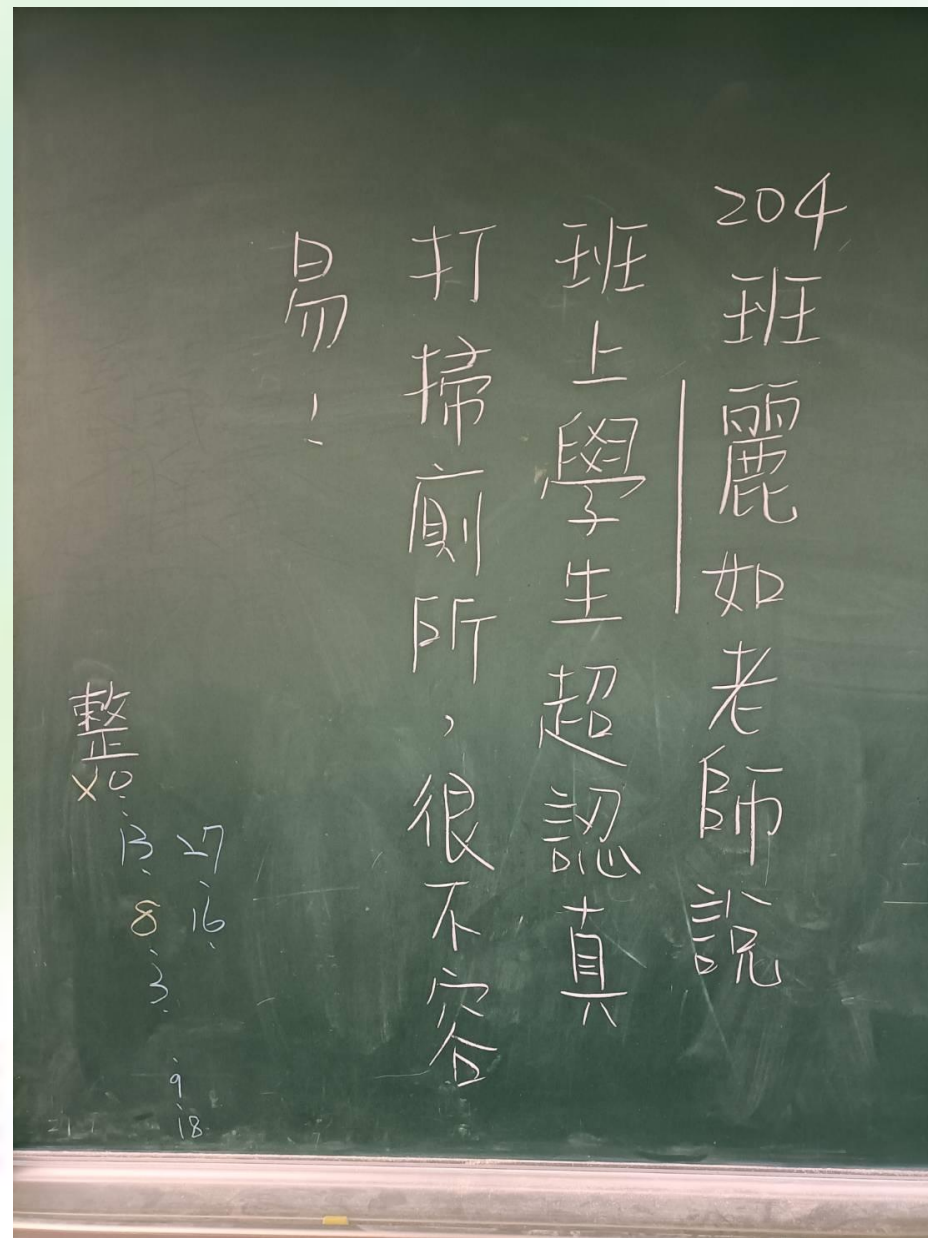 204班麗如老師說
班上學生超認真
打掃廁所，很不容
易！
整
13
8
3
27
16
9
18